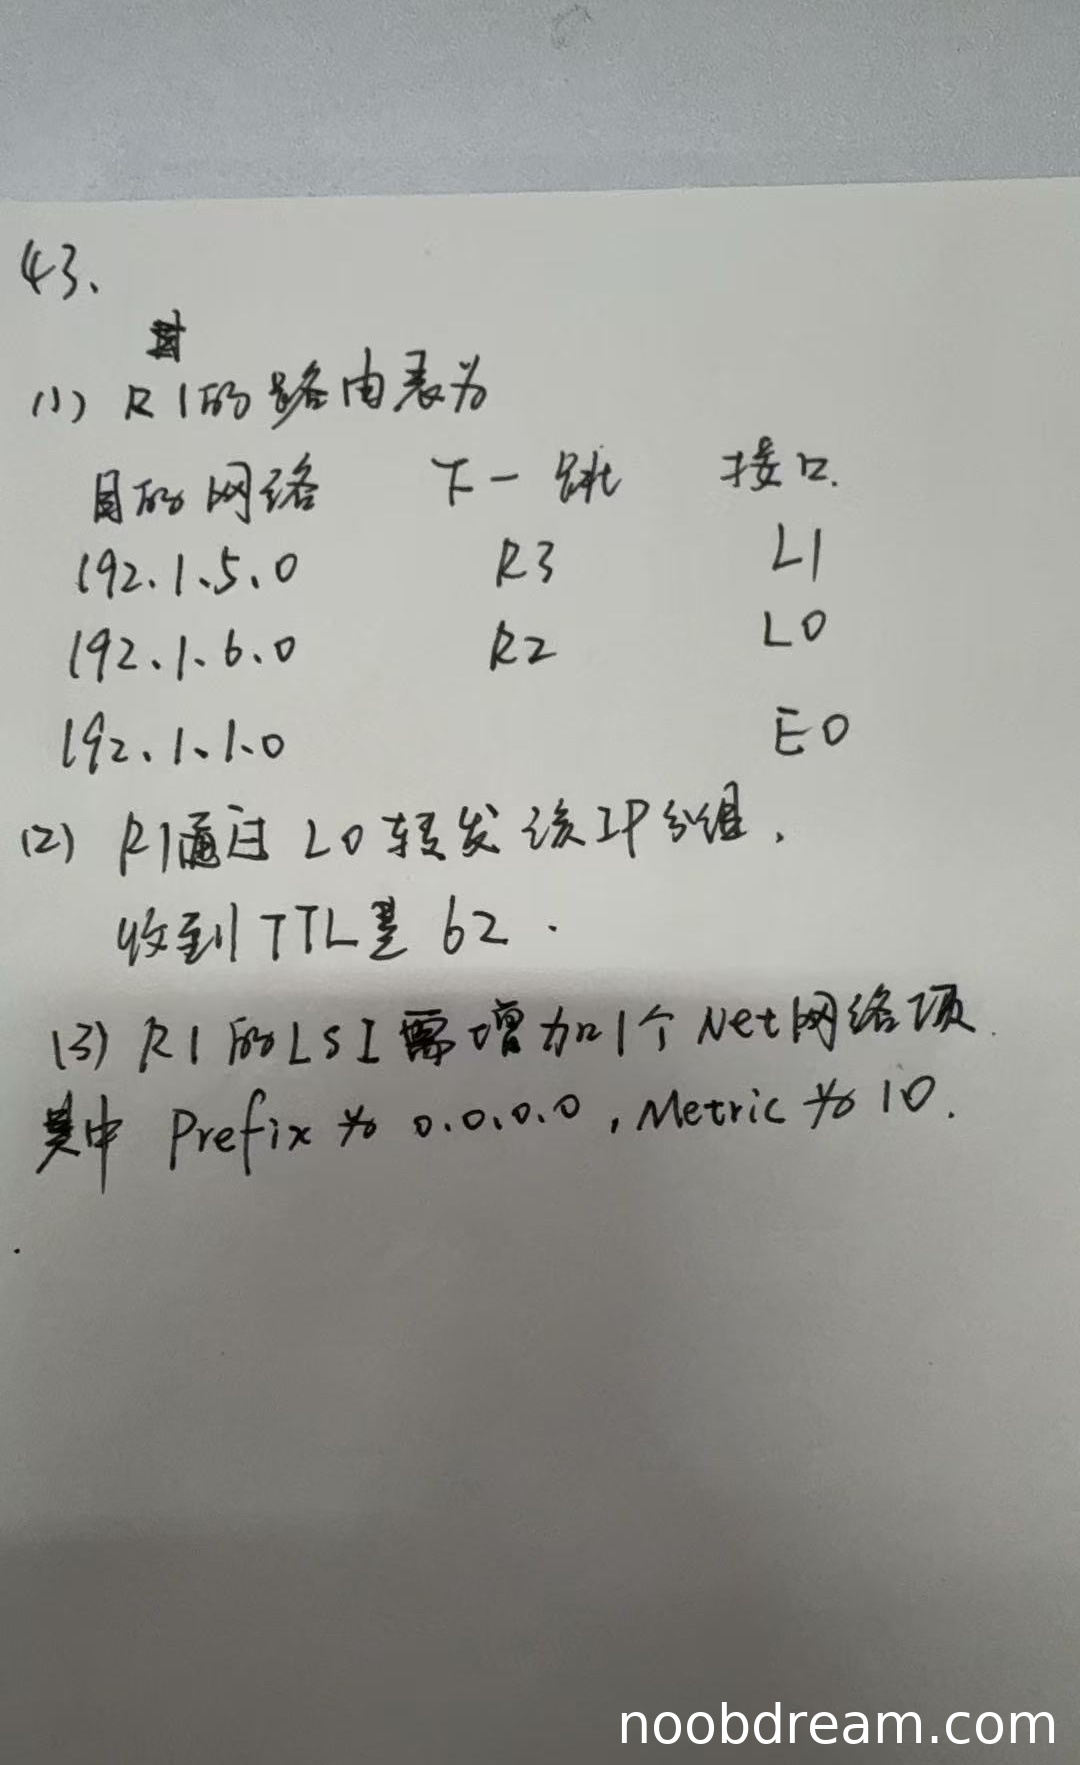 43、
(1) R1的路由表为
目的网络 下一跳 接口.
192.1.5.0 R3 L1
192.1.6.0 R2 L0
192.1.1.0 E0
(2) R1通过 L0 转发该IP分组.
收到TTL是 62.
(3) R1的LSI需增加1个Net网络项.
其中 Prefix为 0.0.0.0, Metric为 10.
noobdream.com